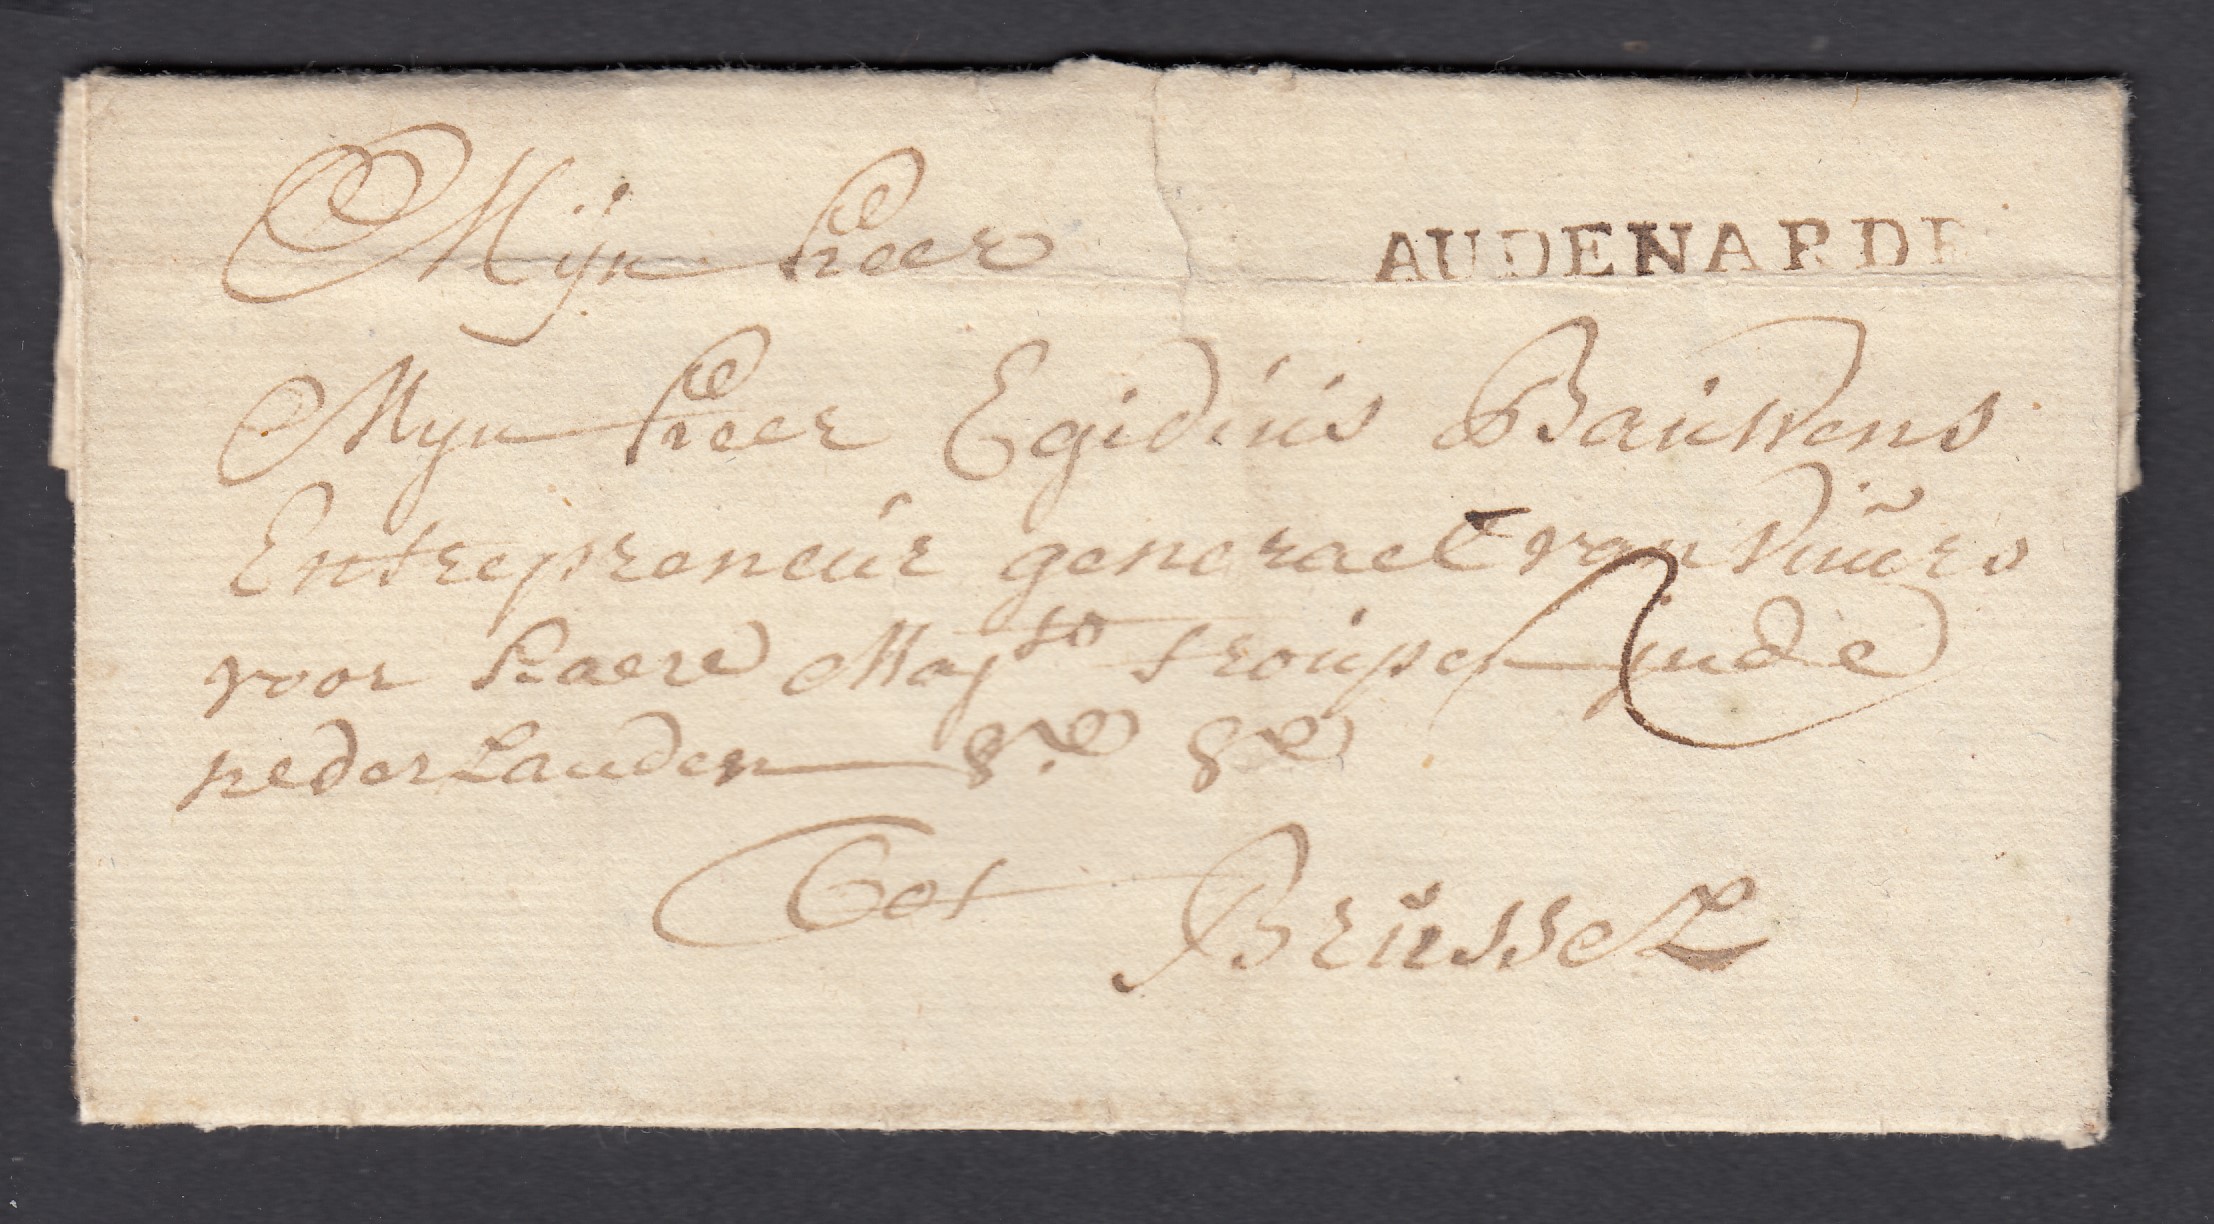 Mijn heer
AUDENARDE
Mijn heer Egidius Bauwens
Entrepreneur generael van
voor haere Majts troupen inde
nederlanden &a &a
2
Tot Brussel